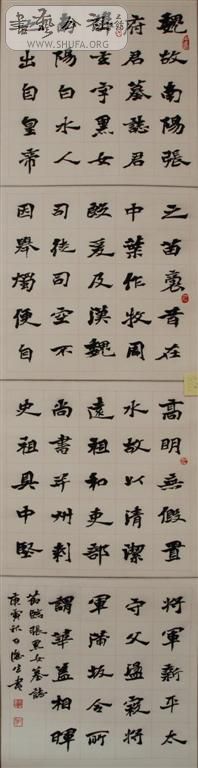 WWW.SHUFA.ORG
魏故南陽張
府君墓誌君
諱玄字黑女
南陽白水人
出自皇帝
之苗裔昔在
中葉作牧周
殷爰及漢魏
司徒司空不
因舉燭便自
高明無假置
水故以清潔
遠祖和吏部
尚書并州刺
史祖具中堅
將軍新平太
守父盪寇將
軍蒲坂令所
謂華蓋相暉
節臨張黑女墓誌
庚寅秋